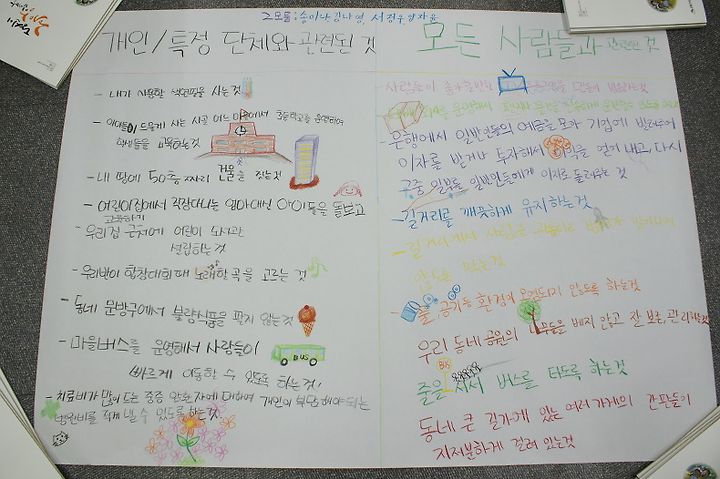 2모둠: 송이다 김나영, 서정우
개인/특정 단체와 관련된 것
- 내가 사용할 색연필을 사는 것
- 아이들이 드물게 사는 시골 어느 마을에서 초등학교를 운영하여
학생들을 교육하는것
- 내 땅에 50층 짜리 건물을 짓는것
- 어린이집에서 직장다니는 엄마대신 아이들을 돌보고
교육하기
- 우리집 근처에 어린이 도서관
설립하는 것
- 우리반이 합창대회 때 노래할 곡을 고르는 것
- 동네 문방구에서 불량식품을 팔지 않는것
- 마을버스를 운영해서 사람들이
BUS
빠르게 이동할 수 있도록 하는 것,
- 치료비가 많이 드는 중증 암환자에 대하여 개인이 부담해야 되는
병원비를 적게 낼 수 있도록 하는 것.
모든 사람들과 관련된 것
- 사람들이 좋아할만한
- 은행에서 일반인들의 예금을 모아 기업에 빌려주어
이자를 받거나 투자해서 이익을 얻어 내고, 다시
그중 일부를 일반인들에게 이자로 돌려주는 것
- 길거리를 깨끗하게 유지하는 것
- 길거리에서
- 물, 공기 등 환경이 오염되지 않도록 하는것
우리 동네 공원의 나무들을 베지 않고 잘 보호, 관리하는것
BUS
줄을 서서 버스를 타도록 하는 것
동네 큰 길가에 있는 여러 가게의 간판들이
지저분하게 걸려 있는것